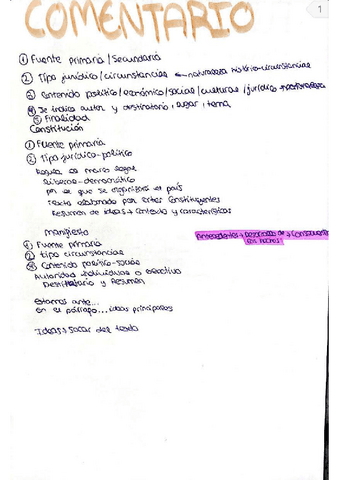 COMENTARIO
1
① Fuente primaria / Secundaria
② Tipo jurídico / circunstancias ← naturaleza histórico-circunstancias
③ Contenido político / económico / social / cultural / jurídico
④ Se indica autor y destinatario, lugar, tema
⑤ Finalidad
Constitución
① Fuente primaria
② Tipo jurídico-político
Regula el marco legal
liberal-democrático
por el que se el país
Texto elaborado por cortes Constituyentes
Resumen de ideas + contexto y características
manifiesto
① Fuente primaria
② tipo circunstancias
③ Contenido político-social
Autoridad individual o colectivo
Destinatario y Resumen
Antecedentes + Desarrollo de + Consecuencias
los hechos
Estamos ante...
en el párrafo... ideas principales
Ideas + sacar del texto